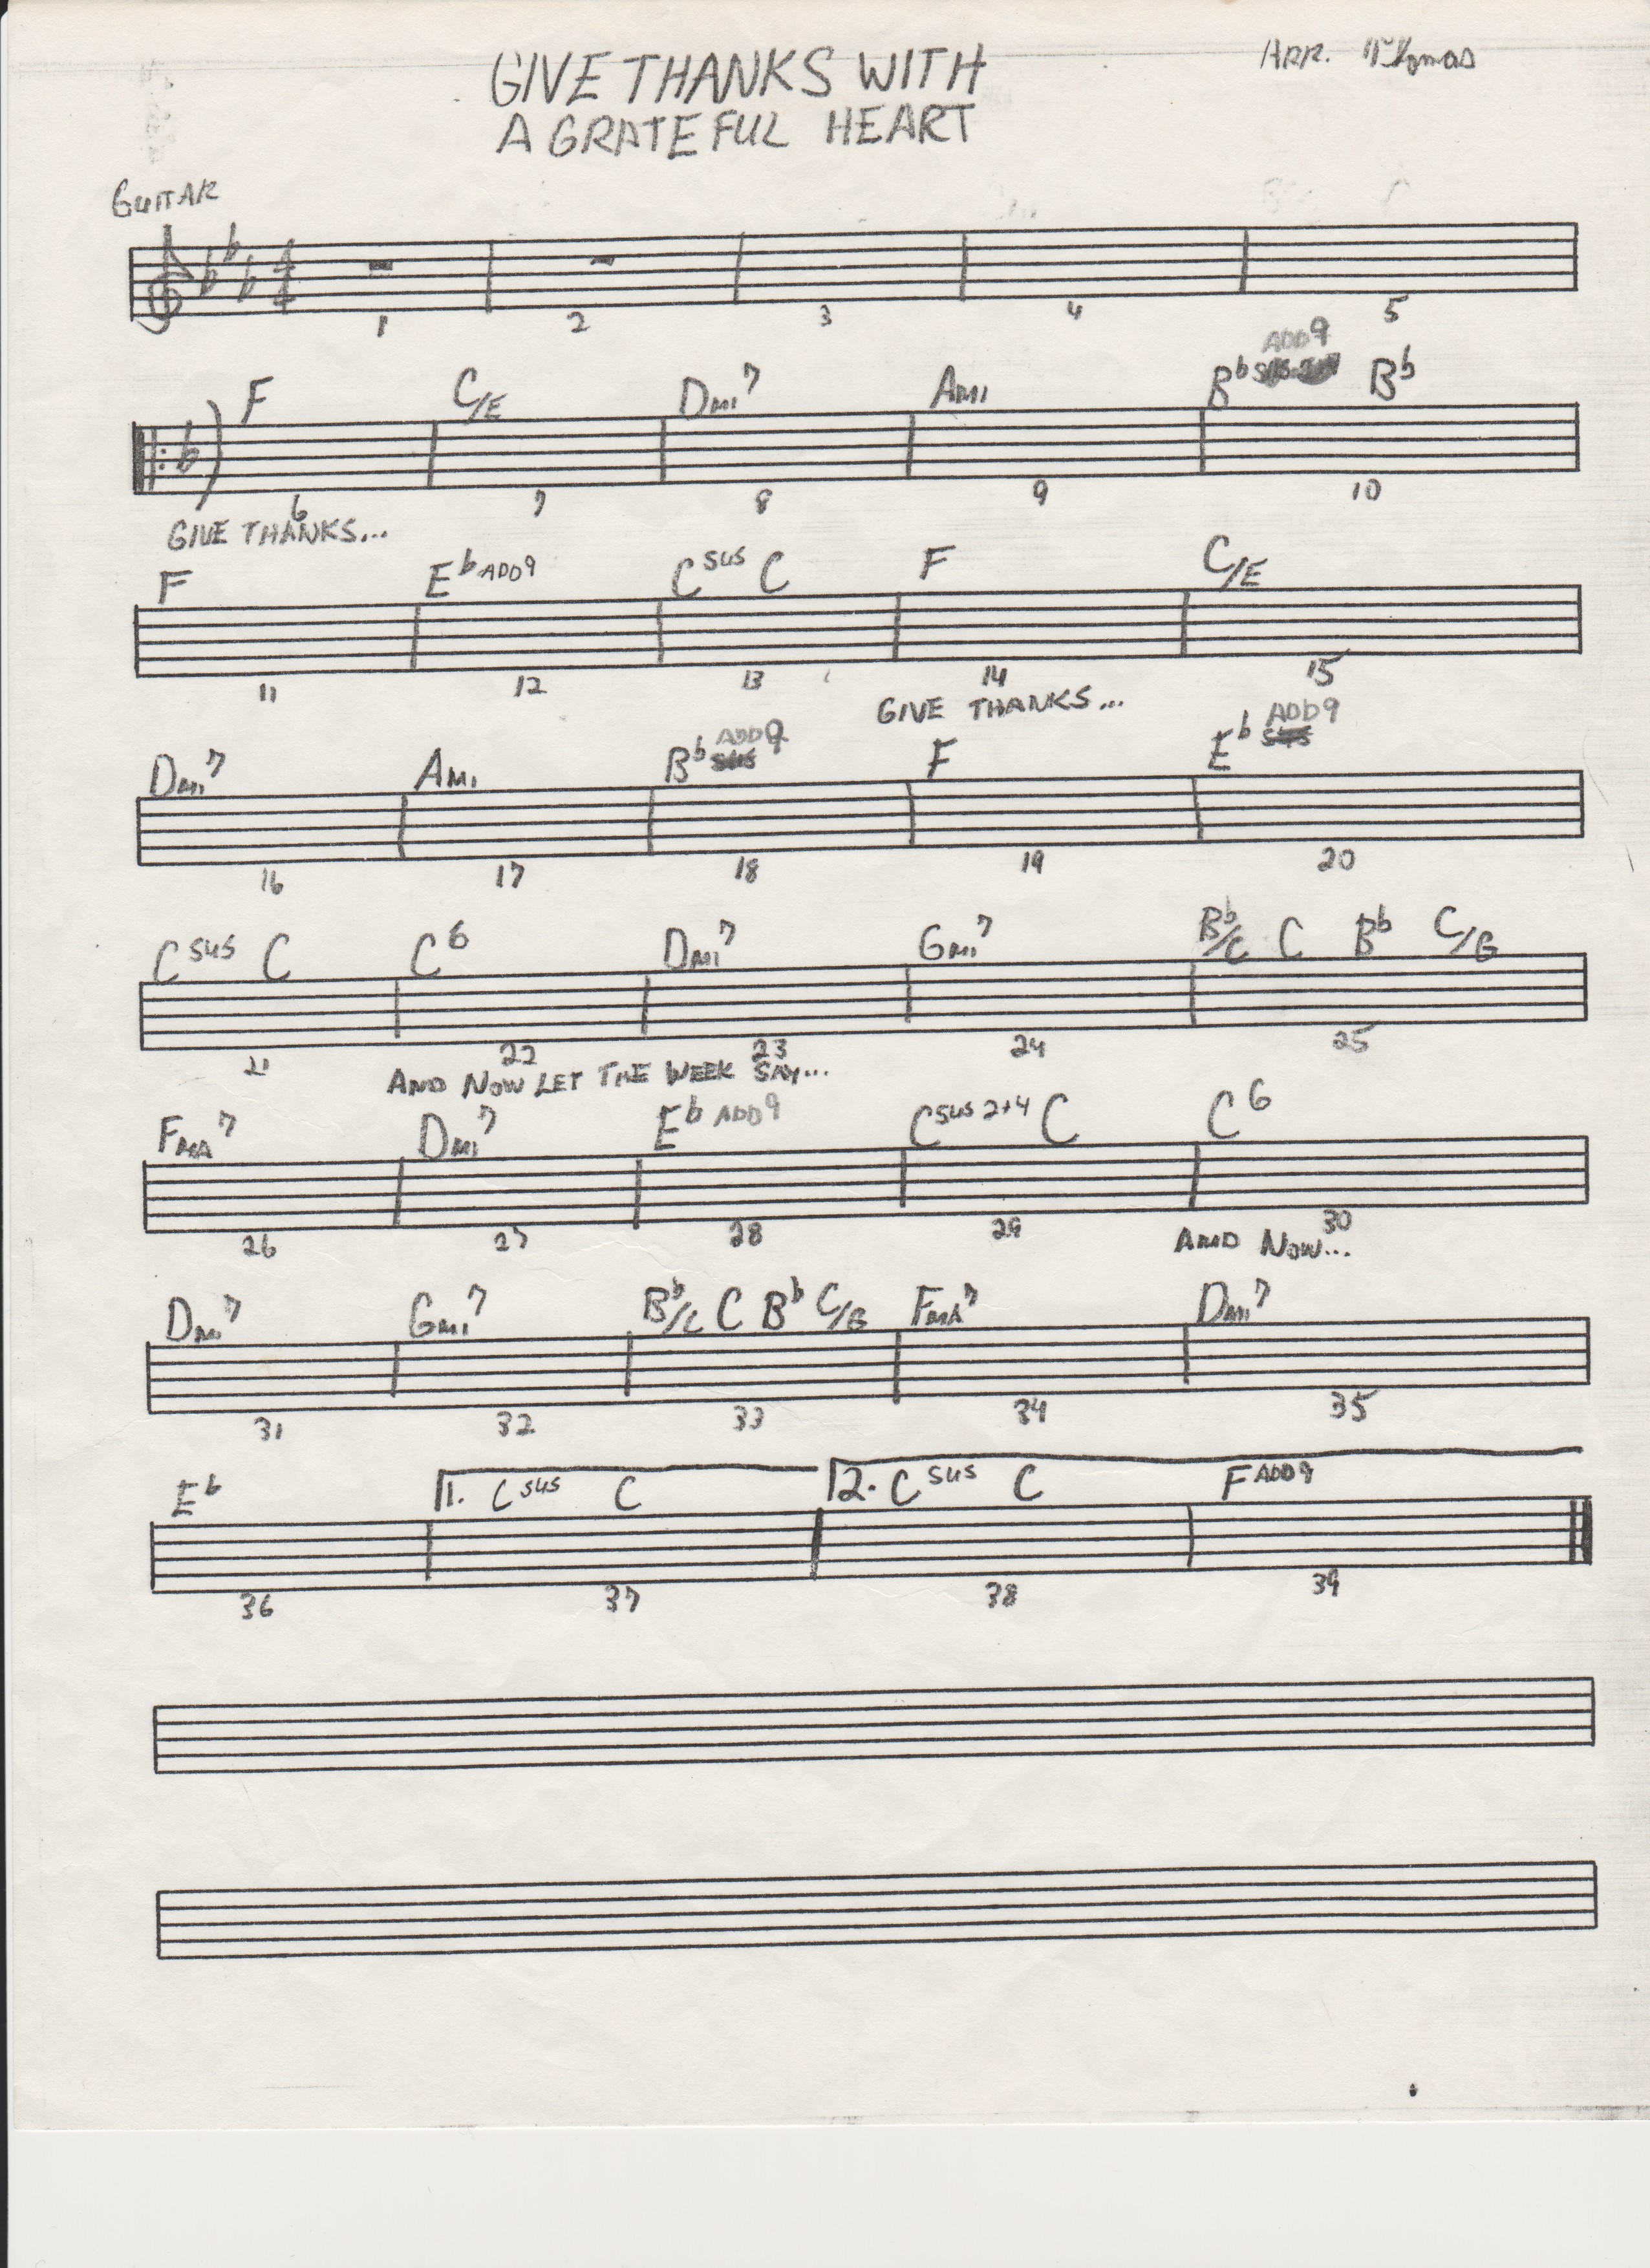 GIVE THANKS WITH
A GRATEFUL HEART
ARR. Thomas
GUITAR
4
1 2 3 4 5
F C/E Dmi7 Ami Bb ADD9 Bb
6 7 8 9 10
GIVE THANKS...
F Eb ADD9 Csus C F C/E
11 12 13 14 15
GIVE THANKS...
Dmi7 Ami Bb ADD9 F Eb ADD9
16 17 18 19 20
Csus C C6 Dmi7 Gmi7 Bb/C C Bb C/G
21 22 23 24 25
AND NOW LET THE WEEK SAY...
FMA7 Dmi7 Eb ADD9 Csus 2+4 C C6
26 27 28 29 30
AND NOW...
Dmi7 Gmi7 Bb/C C Bb C/G FMA7 Dmi7
31 32 33 34 35
Eb 1. Csus C 2. Csus C F ADD9
36 37 38 39